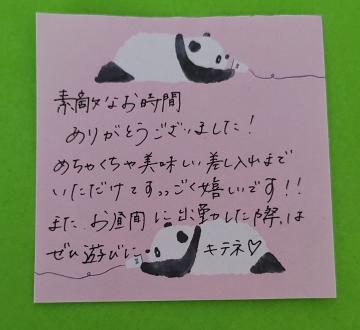 素敵なお時間
ありがとうございました!
めちゃくちゃ美味しい差し入れまで
いただけてすっっごく嬉しいです!!
また、お昼間に出勤した際は
ぜひ遊びに キテネ♡